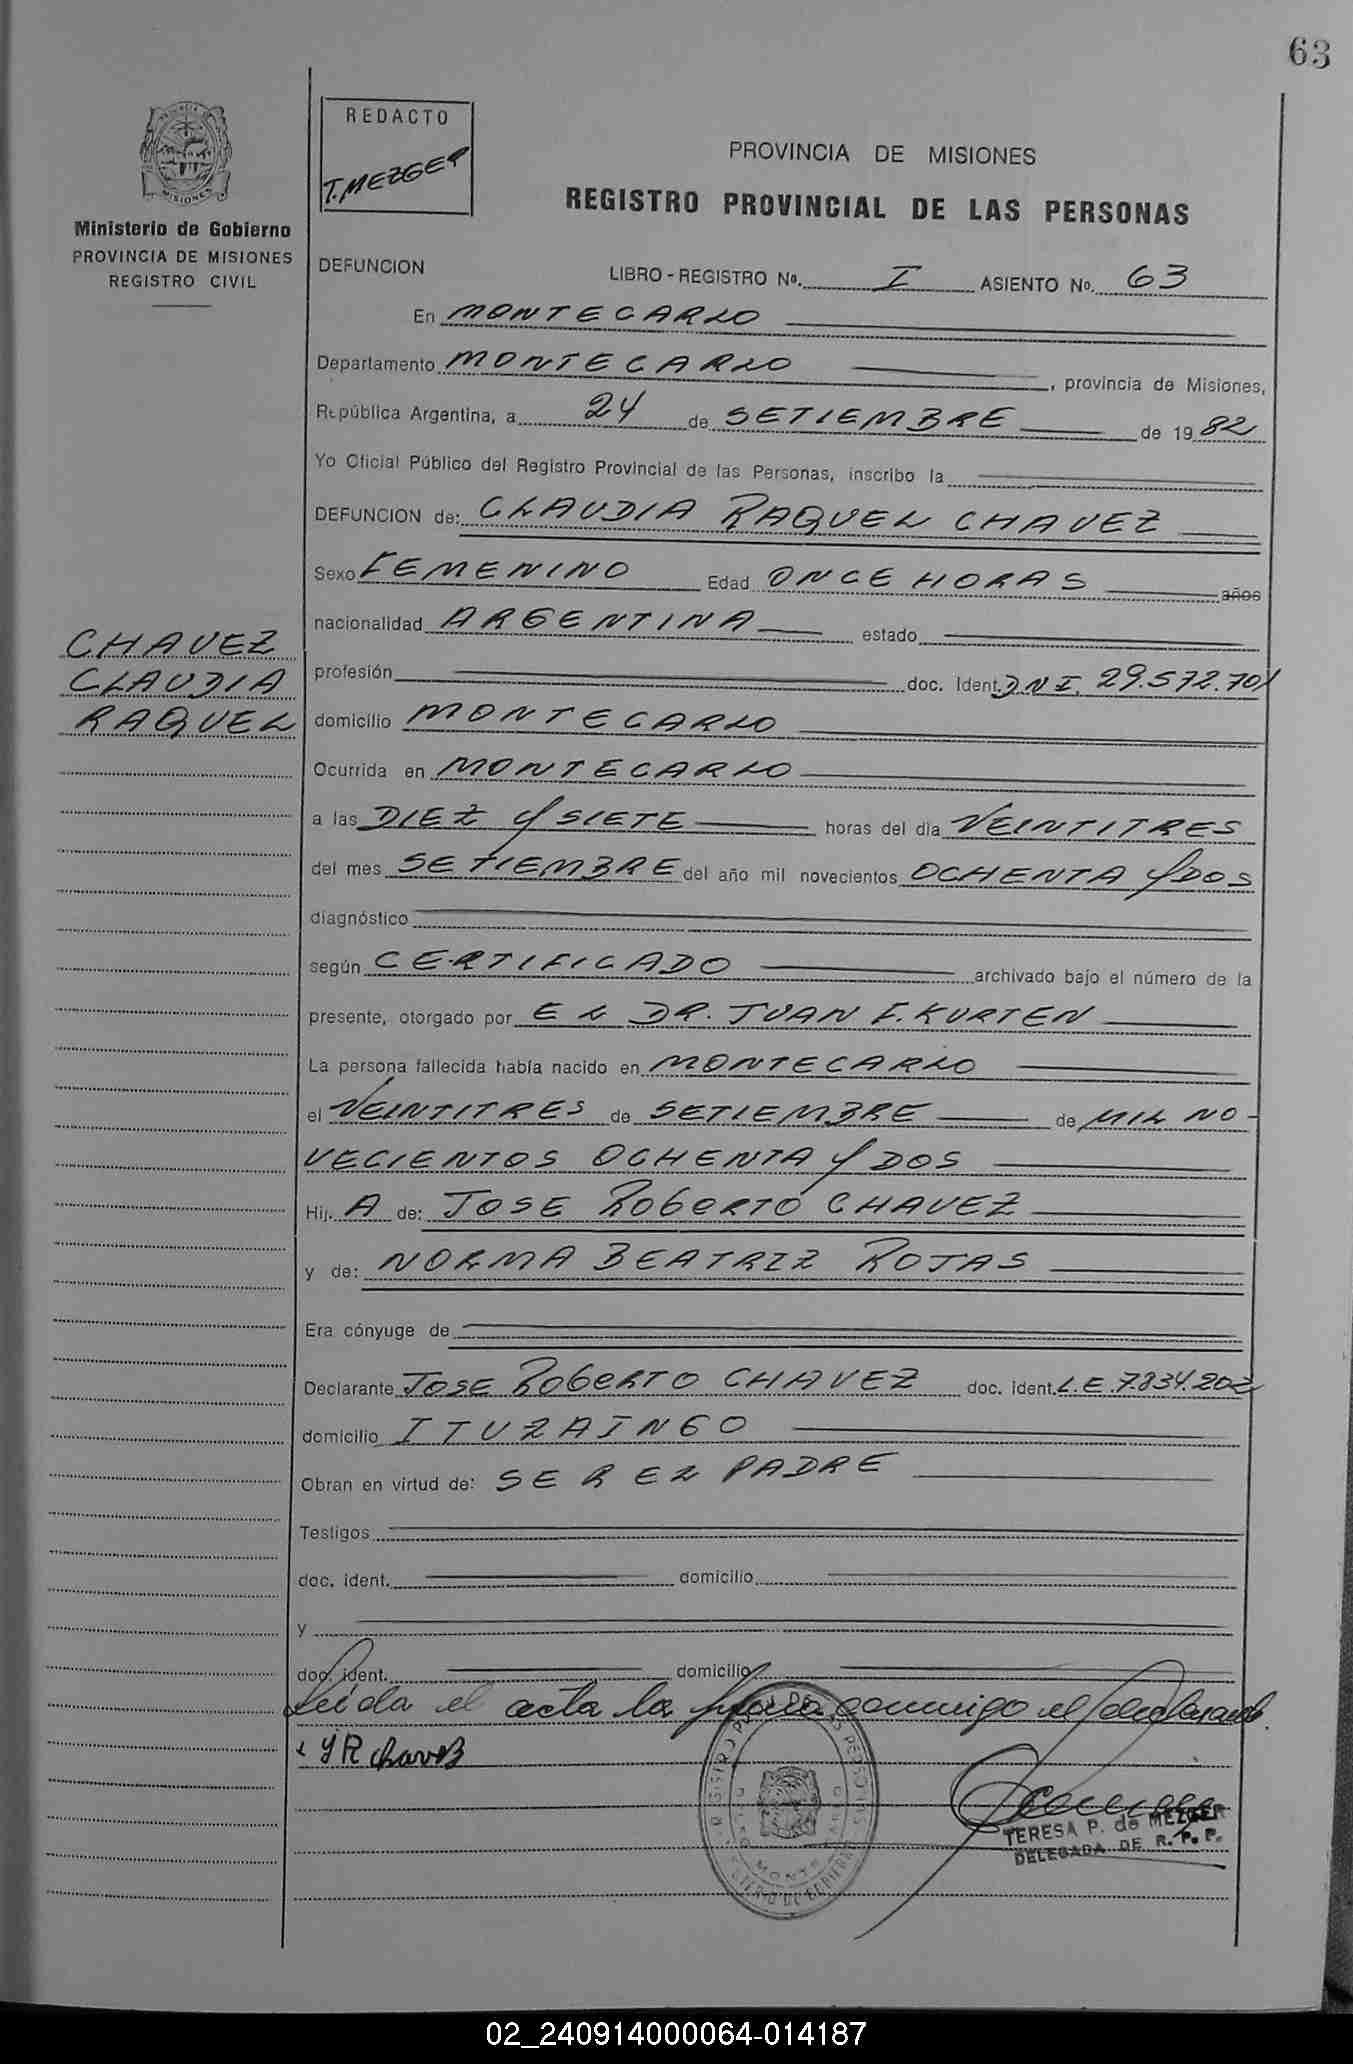 63
REDACTO
T. MEZGER
PROVINCIA DE MISIONES
REGISTRO PROVINCIAL DE LAS PERSONAS
Ministerio de Gobierno
PROVINCIA DE MISIONES
REGISTRO CIVIL
DEFUNCION LIBRO - REGISTRO Nº. I ASIENTO Nº. 63
En MONTECARLO
Departamento MONTECARLO, provincia de Misiones,
República Argentina, a 24 de SETIEMBRE de 1982
Yo Oficial Público del Registro Provincial de las Personas, inscribo la
DEFUNCION de: CLAUDIA RAQUEL CHAVEZ
Sexo FEMENINO Edad ONCE HORAS años
nacionalidad ARGENTINA estado
CHAVEZ
CLAUDIA
RAQUEL
profesión doc. Ident. DNI. 29.572.701
domicilio MONTECARLO
Ocurrida en MONTECARLO
a las DIEZ Y SIETE horas del día VEINTITRES
del mes SETIEMBRE del año mil novecientos OCHENTA Y DOS
diagnóstico
según CERTIFICADO archivado bajo el número de la
presente, otorgado por EL DR. JUAN F. KURTEN
La persona fallecida había nacido en MONTECARLO
el VEINTITRES de SETIEMBRE de MIL NO-
VECIENTOS OCHENTA Y DOS
Hij. A de: JOSE ROBERTO CHAVEZ
y de: NORMA BEATRIZ ROJAS
Era cónyuge de
Declarante JOSE ROBERTO CHAVEZ doc. ident. L.E. 7.834.202
domicilio ITUZAINGO
Obran en virtud de: SER EL PADRE
Testigos
doc. ident. domicilio
y
doc. ident. domicilio
Leída el acta la firma conmigo el declarante.
JR Chavez
TERESA P. de MEZGER
DELEGADA DE R. P. P.
02_240914000064-014187